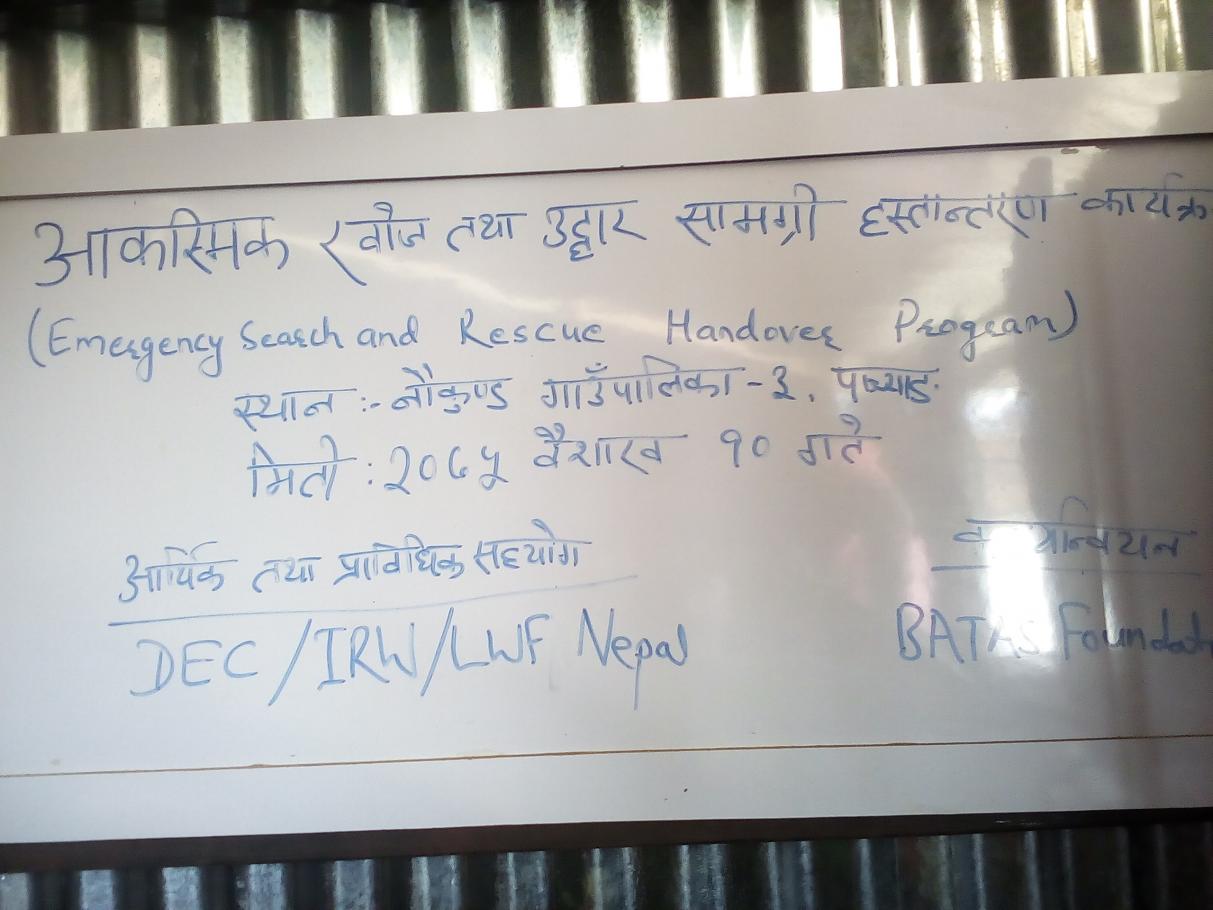 आकस्मिक खोज तथा उद्धार सामग्री हस्तान्तरण कार्यक्र
(Emergency Search and Rescue Handover Program)
स्थान :- नौकुण्ड गाउँपालिका - ३,
मिती : २०७५ वैशाख १० गते
आर्थिक तथा प्राविधिक सहयोग
DEC/IRW/LWF Nepal
BATAS Foundat